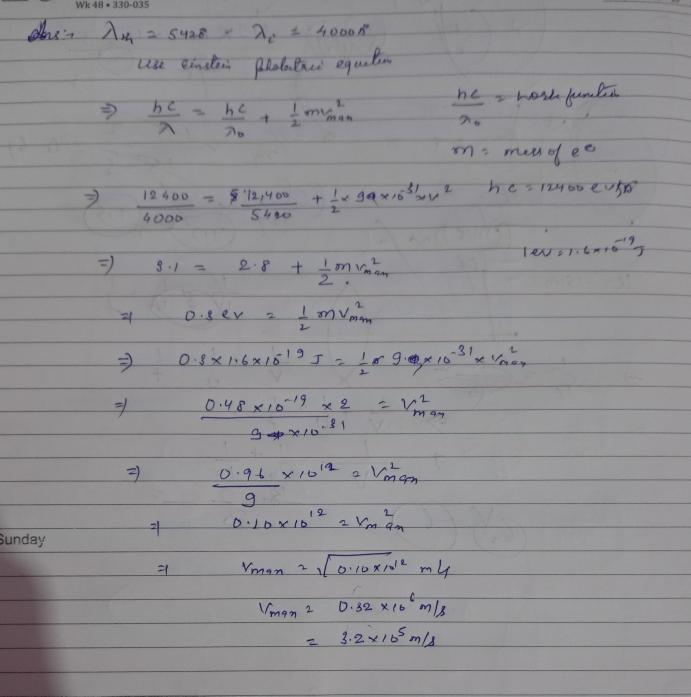 Wk 48 • 330-035
Ans:- λm = 5428 - λc = 4000Å
Use einstein photoelectric equation
⇒ hc/λ = hc/λ₀ + 1/2 mv²man
hc/λ₀ = work function
m = mass of e⊖
⇒ 12400/4000 = 12,400/5420 + 1/2 × 9 × 10⁻³¹ × v²
hc = 12400 ev Å
1ev = 1.6×10⁻¹⁹ J
⇒ 3.1 = 2.8 + 1/2 m v²man
⇒ 0.3 ev = 1/2 m V²man
⇒ 0.3 × 1.6 × 10⁻¹⁹ J = 1/2 × 9 × 10⁻³¹ × V²man
⇒ 0.48 × 10⁻¹⁹ × 2 / 9 × 10⁻³¹ = V²man
⇒ 0.96/9 × 10¹² = V²man
⇒ 0.10 × 10¹² = V²man
Sunday
⇒ Vman = √0.10×10¹² m/s
Vman = 0.32 × 10⁶ m/s
= 3.2 × 10⁵ m/s